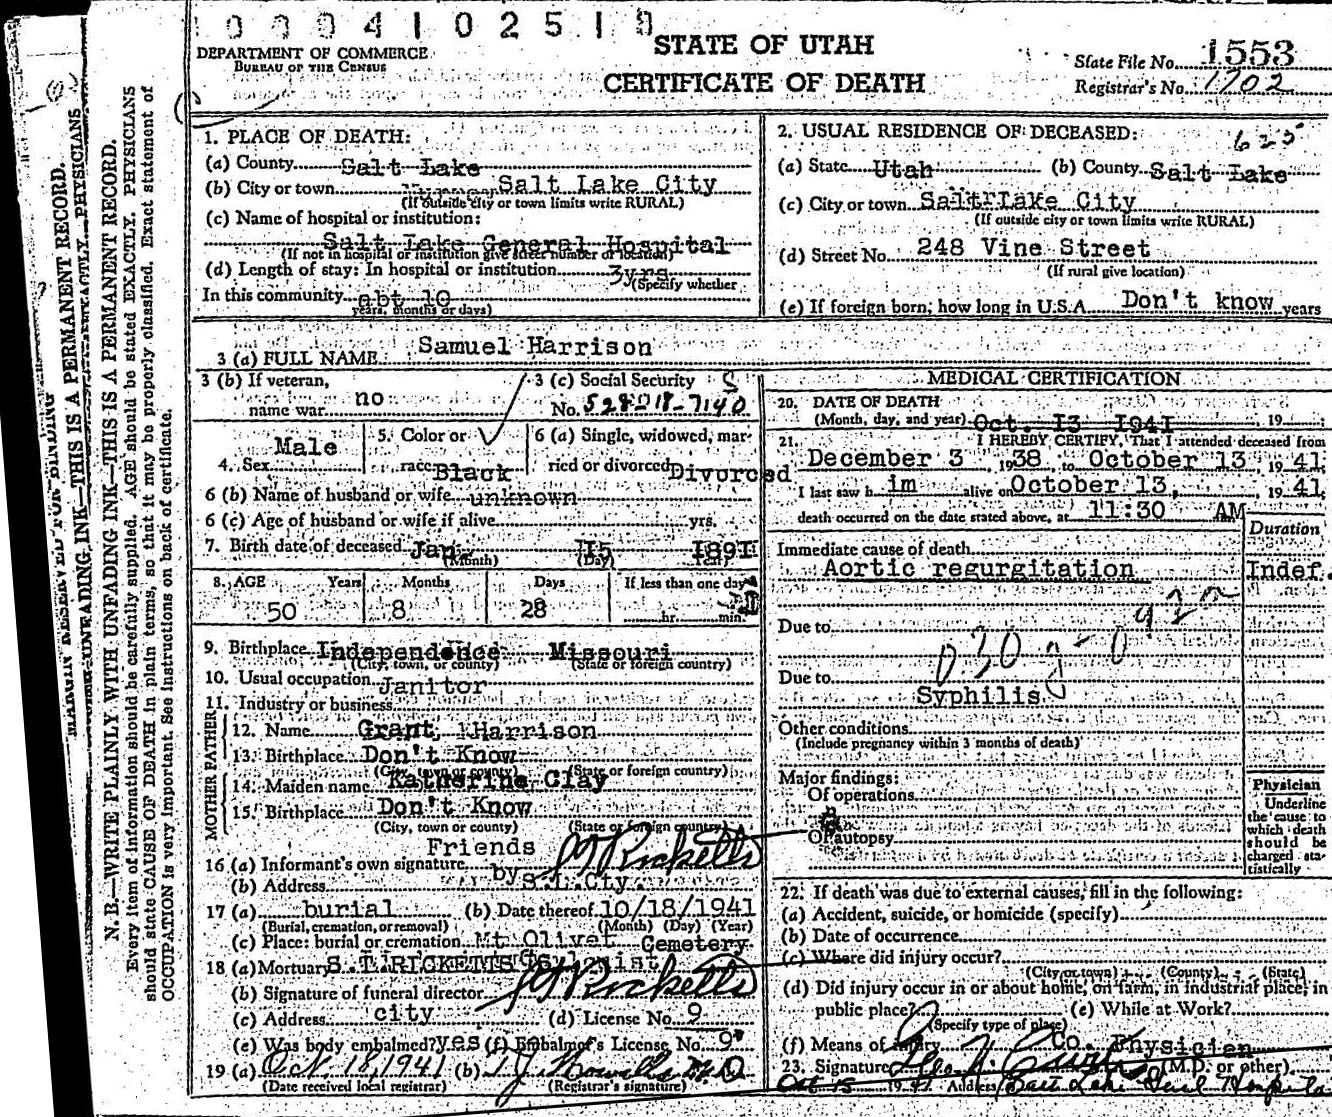 0 0 0 4 1 0 2 5 1 0
DEPARTMENT OF COMMERCE
BUREAU OF THE CENSUS
STATE OF UTAH
CERTIFICATE OF DEATH
State File No. 1553
Registrar's No. 1702
MARGIN RESERVED FOR BINDING
N. B.—WRITE PLAINLY WITH UNFADING INK—THIS IS A PERMANENT RECORD.
Every item of information should be carefully supplied. AGE should be stated EXACTLY. PHYSICIANS
should state CAUSE OF DEATH in plain terms, so that it may be properly classified. Exact statement of
OCCUPATION is very important. See instructions on back of certificate.
1. PLACE OF DEATH:
(a) County Salt Lake
(b) City or town Salt Lake City
(If outside city or town limits write RURAL)
(c) Name of hospital or institution:
Salt Lake General Hospital
(If not in hospital or institution give street number or location)
(d) Length of stay: In hospital or institution 3yrs
(Specify whether
In this community abt 10
years, months or days)
2. USUAL RESIDENCE OF DECEASED: 625
(a) State Utah (b) County Salt Lake
(c) City or town Salt Lake City
(If outside city or town limits write RURAL)
(d) Street No. 248 Vine Street
(If rural give location)
(e) If foreign born, how long in U.S.A. Don't know years
3 (a) FULL NAME Samuel Harrison
3 (b) If veteran,
name war no
3 (c) Social Security
No. 528-18-7140
4. Sex Male
5. Color or
race Black
6 (a) Single, widowed, mar-
ried or divorced Divorced
6 (b) Name of husband or wife unknown
6 (c) Age of husband or wife if alive yrs.
7. Birth date of deceased Jan. 15 1891
(Month) (Day) (Year)
8. AGE Years Months Days If less than one day
50 8 28 hr. min.
9. Birthplace Independence Missouri
(City, town, or county) (State or foreign country)
10. Usual occupation Janitor
11. Industry or business
FATHER
12. Name Grant Harrison
13. Birthplace Don't Know
(City, town or county) (State or foreign country)
MOTHER
14. Maiden name Katherine Clay
15. Birthplace Don't Know
(City, town or county) (State or foreign country)
Friends
16 (a) Informant's own signature by Ricketts
(b) Address S.L.Cty.
17 (a) burial (b) Date thereof 10/18/1941
(Burial, cremation, or removal) (Month) (Day) (Year)
(c) Place: burial or cremation Mt Olivet Cemetery
18 (a) Mortuary S. T. RICKETTS
(b) Signature of funeral director Ricketts
(c) Address city (d) License No. 9
(e) Was body embalmed? yes (f) Embalmer's License No. 9
19 (a) Oct. 18, 1941 (b) M.D
(Date received local registrar) (Registrar's signature)
MEDICAL CERTIFICATION
20. DATE OF DEATH
(Month, day, and year) Oct. 13 1941, 19
21. I HEREBY CERTIFY, That I attended deceased from
December 3, 1938, to October 13, 1941,
I last saw h im alive on October 13, 1941,
death occurred on the date stated above, at 11:30 AM
Duration
Immediate cause of death
Aortic regurgitation Indef.
Due to
Due to
Syphilis
Other conditions
(Include pregnancy within 3 months of death)
Major findings:
Of operations
Of autopsy
Physician
Underline
the cause to
which death
should be
charged sta-
tistically
22. If death was due to external causes, fill in the following:
(a) Accident, suicide, or homicide (specify)
(b) Date of occurrence
(c) Where did injury occur?
(City or town) (County) (State)
(d) Did injury occur in or about home, on farm, in industrial place, in
public place? (e) While at Work?
(Specify type of place)
(f) Means of injury Co. Physician
23. Signature (M.D. or other)
Oct 15 1941 Address Salt Lake Genl Hospital